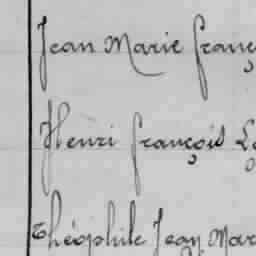 Jean Marie franç
Henri françois
Théophile Jean Mar